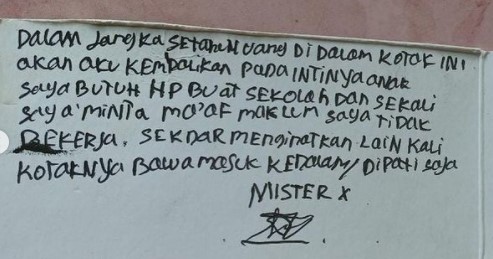 Dalam jangka SETAHUN uang Di Dalam KOTAK INI
akan aku KEMBALIKAN PADA INTINYA anak
saya BUTUH HP BUAT SEKOLAH Dan SEKALI
saya MINTA MA'AF MAKLUM saya TIDAK
BEKERJA. SEKDAR menginatkan Lain Kali
KOTAKNYA Bawa masuk KEDALAM/ DiPATI saja
MISTER X